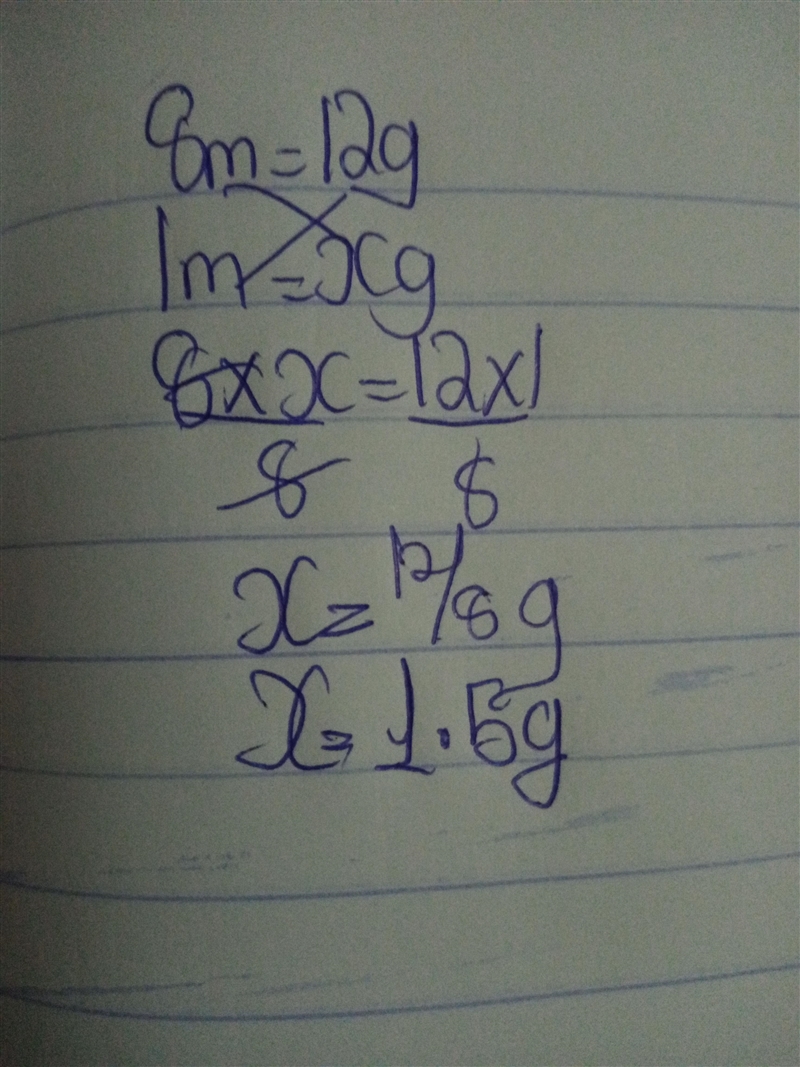 8m = 12g
1m = xg
8 × x = 12 × 1
8 8
x = 12/8 g
x = 1.5g